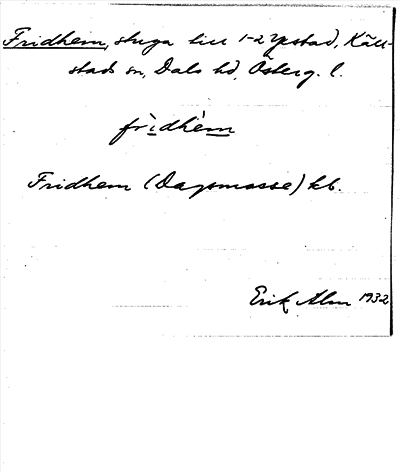 Fridhem, stuga till 1-2 Ypstad, Käll-
stads sn, Dals hd, Österg. l.
frìdhèm
Fridhem (Dagsmosse) kb.
Erik Alm 1932